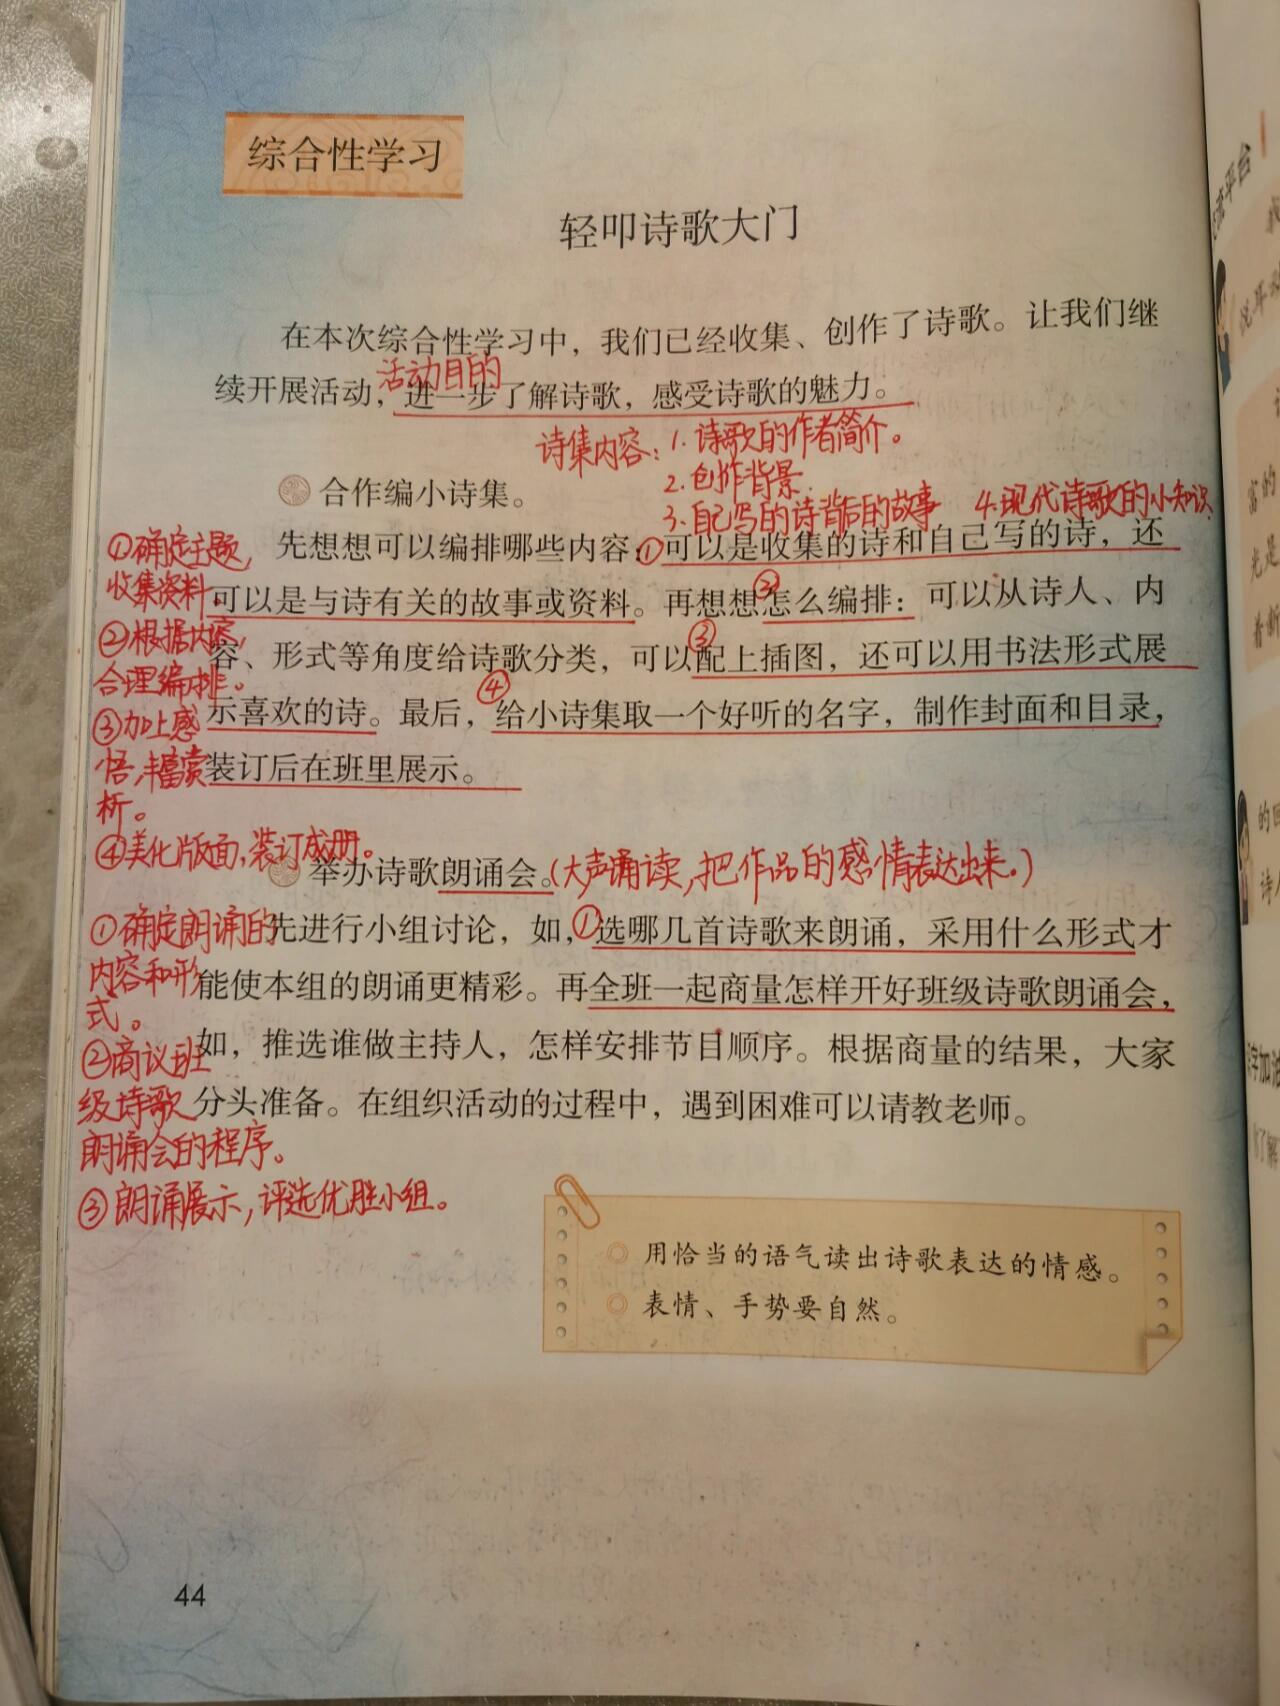 综合性学习
轻叩诗歌大门
在本次综合性学习中，我们已经收集、创作了诗歌。让我们继
活动目的
续开展活动，进一步了解诗歌，感受诗歌的魅力。
诗集内容：1.诗歌的作者简介。
2.创作背景.
3.自己写的诗背后的故事 4.现代诗歌的小知识.
合作编小诗集。
先想想可以编排哪些内容：①可以是收集的诗和自己写的诗，还
可以是与诗有关的故事或资料。再想想②怎么编排：可以从诗人、内
容、形式等角度给诗歌分类，可以③配上插图，还可以用书法形式展
示喜欢的诗。最后，④给小诗集取一个好听的名字，制作封面和目录，
装订后在班里展示。
①确定主题，
收集资料。
②根据内容，
合理编排。
③加上感
悟，丰富赏
析。
④美化版面，装订成册。
举办诗歌朗诵会。(大声诵读，把作品的感情表达出来。)
先进行小组讨论，如，①选哪几首诗歌来朗诵，采用什么形式才
能使本组的朗诵更精彩。再全班一起商量怎样开好班级诗歌朗诵会，
如，推选谁做主持人，怎样安排节目顺序。根据商量的结果，大家
分头准备。在组织活动的过程中，遇到困难可以请教老师。
①确定朗诵的
内容和形
式。
②商议班
级诗歌
朗诵会的程序。
③朗诵展示，评选优胜小组。
用恰当的语气读出诗歌表达的情感。
表情、手势要自然。
44
流平台
富的
光是
看断
的回
诗人
字加油
了解